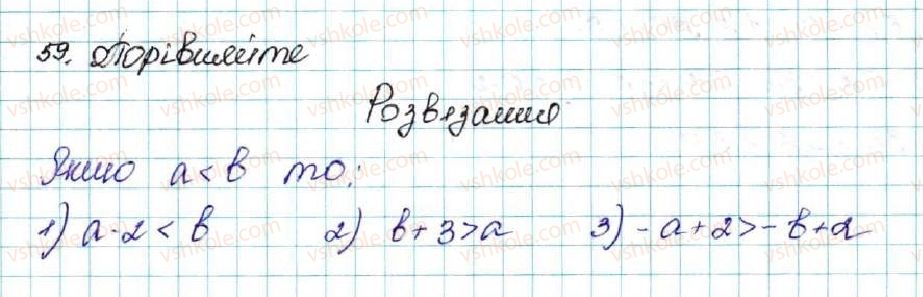 59. Порівняйте
Розв'язання
Якщо a < b то:
1) a - 2 < b 2) b + 3 > a 3) - a + 2 > - b + 2